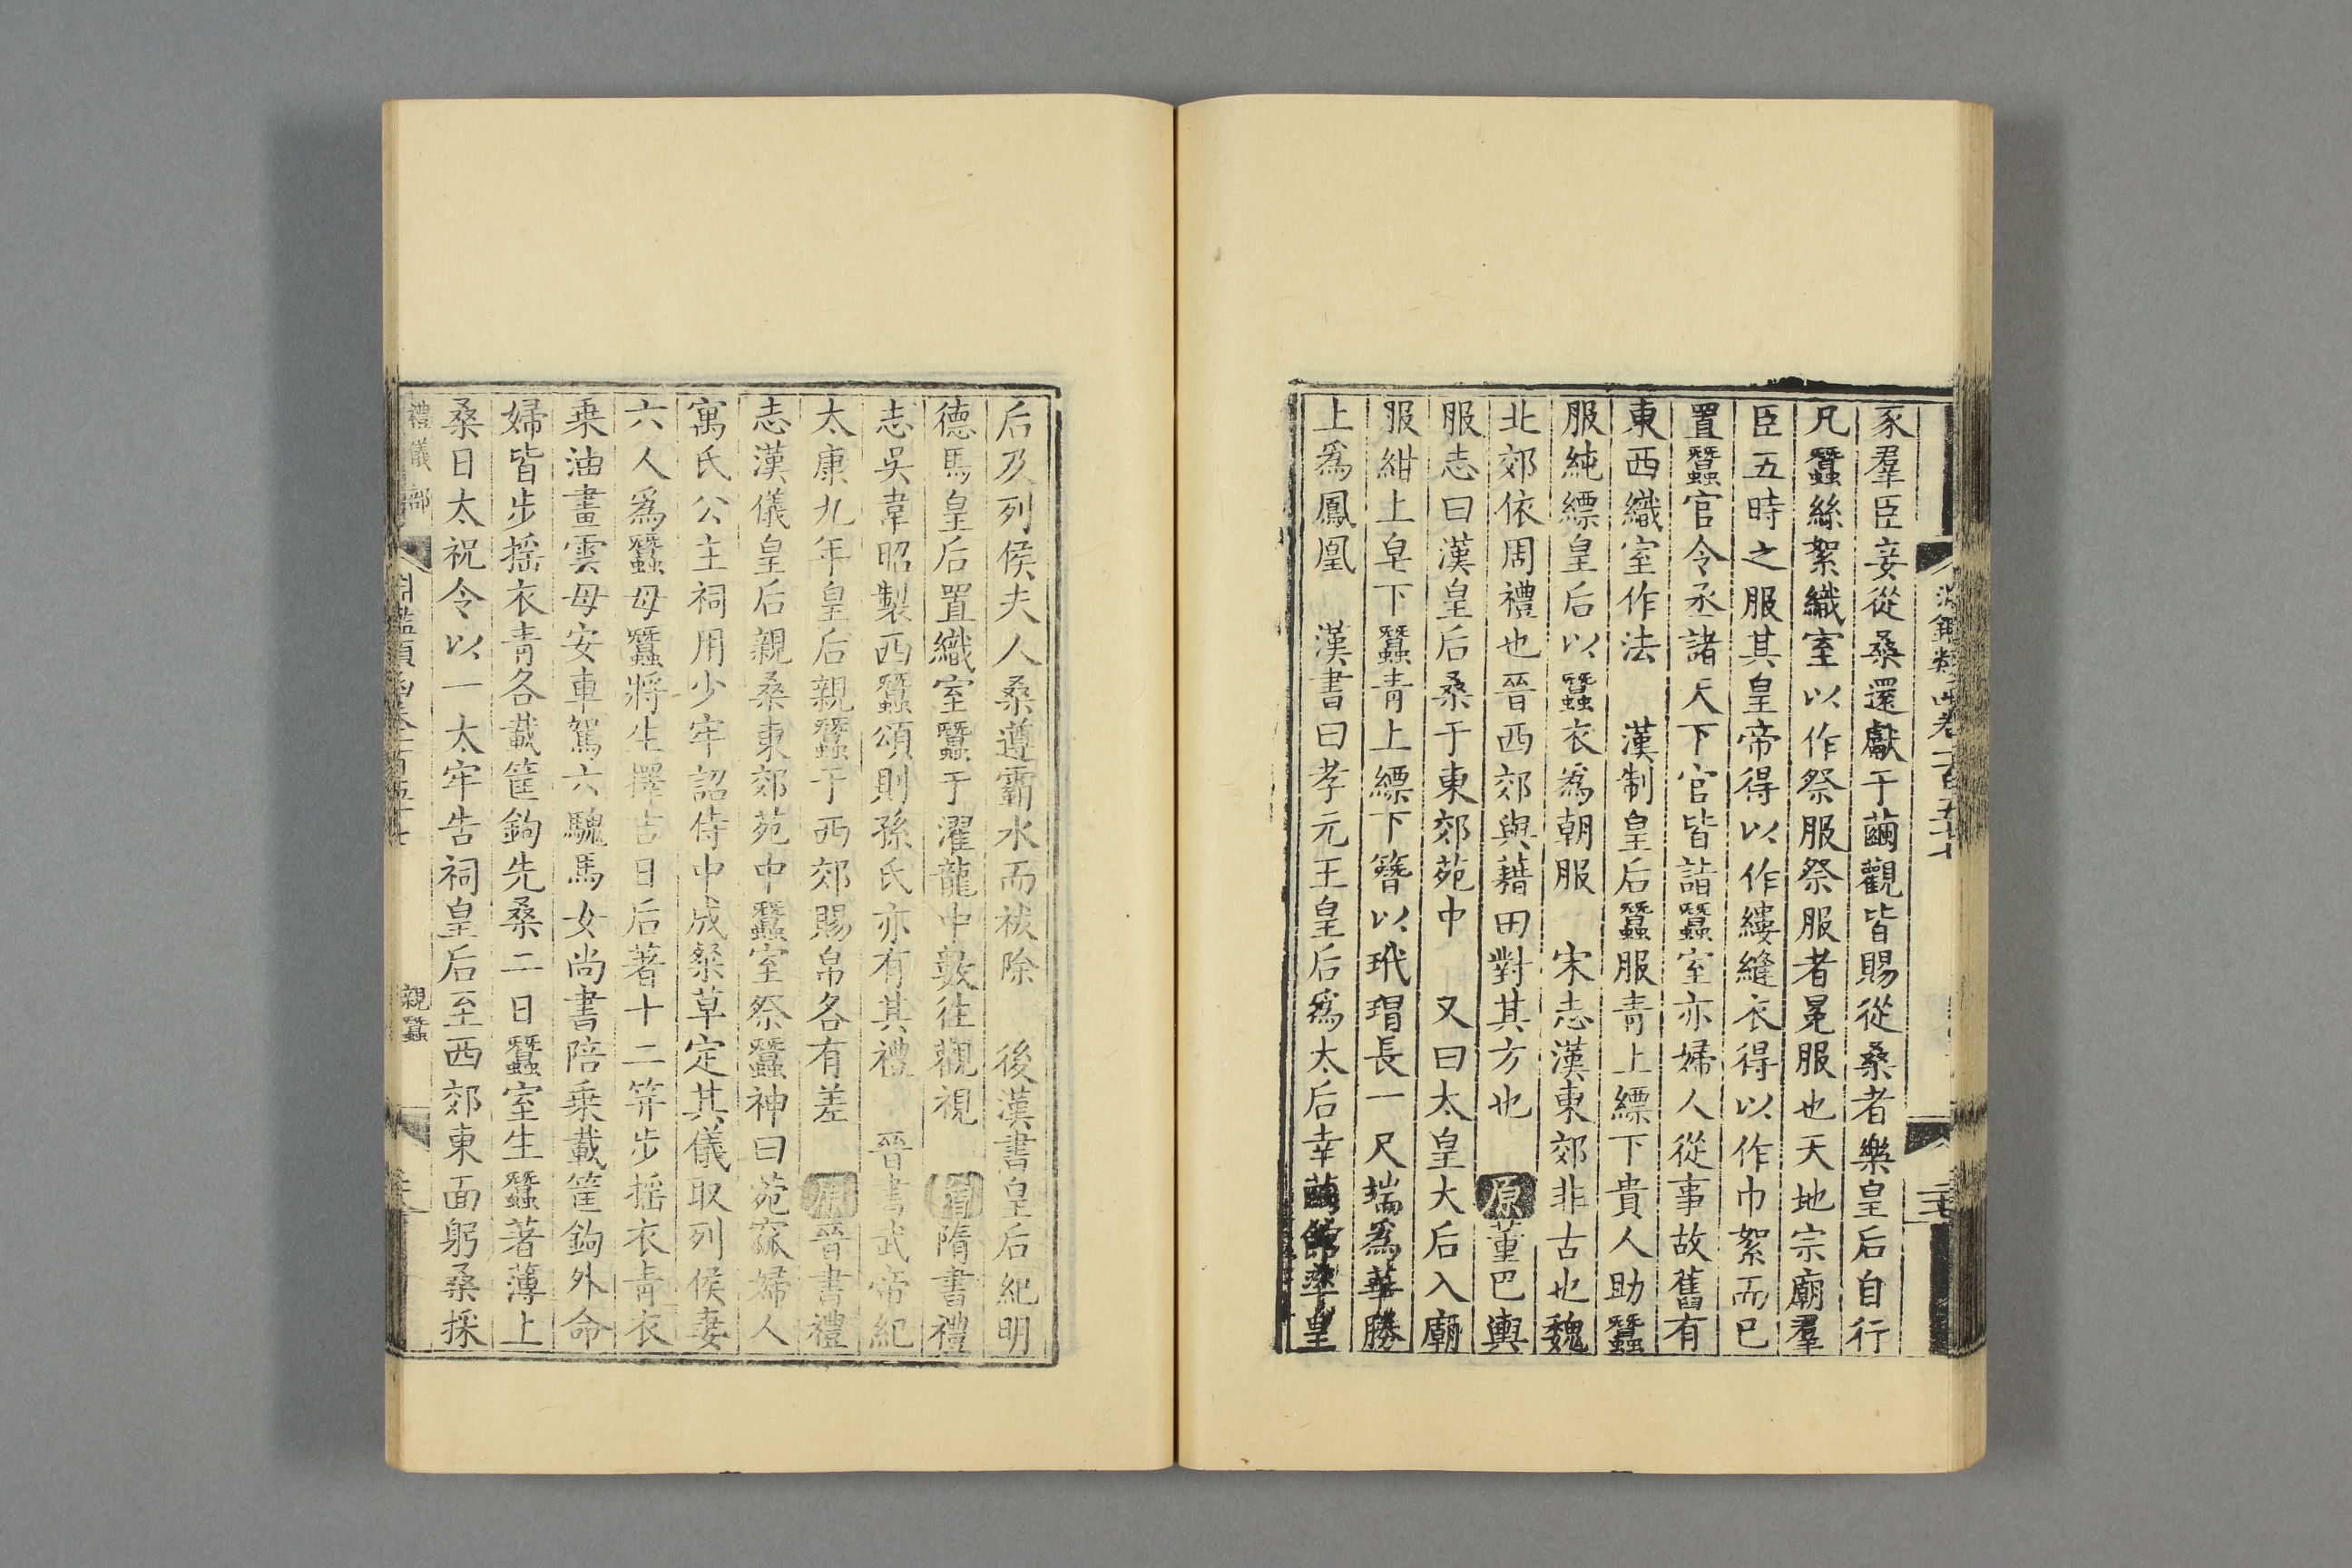 豕羣臣妾從桑還獻于繭觀皆賜從桑者樂皇后自行
凡蠶絲絮織室以作祭服祭服者冕服也天地宗廟羣
臣五時之服其皇帝得以作縷縫衣得以作巾絮而已
置蠶官令丞諸天下官皆詣蠶室亦婦人從事故舊有
東西織室作法　漢制皇后蠶服青上縹下貴人助蠶
服純縹皇后以蠶衣爲朝服　宋志漢東郊非古也魏
北郊依周禮也晉西郊與藉田對其方也　原董巴輿
服志曰漢皇后桑于東郊苑中　又曰太皇大后入廟
服紺上皂下蠶青上縹下簪以玳瑁長一尺端爲華勝
上爲鳳凰　漢書曰孝元王皇后爲太后幸繭館率皇
后及列侯夫人桑遵霸水而祓除　後漢書皇后紀明
德馬皇后置織室蠶于濯龍中數往觀視　增隋書禮
志吳韋昭製西蠶頌則孫氏亦有其禮　晉書武帝紀
太康九年皇后親蠶于西郊賜帛各有差　原晉書禮
志漢儀皇后親桑東郊苑中蠶室祭蠶神曰菀窳婦人
寓氏公主祠用少牢詔侍中成粲草定其儀取列侯妻
六人爲蠶母蠶將生擇吉日后著十二笄步摇衣青衣
乗油畫雲母安車駕六騩馬女尚書陪乗載筐鉤外命
婦皆步摇衣青各載筐鉤先桑二日蠶室生蠶著薄上
桑日太祝令以一太牢告祠皇后至西郊東面躬桑採
禮儀部
親蠶